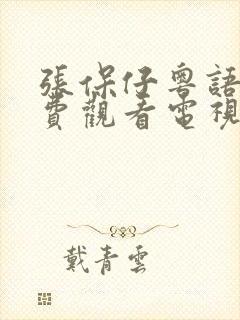 張保仔粵語
費觀看電視
戴青雲